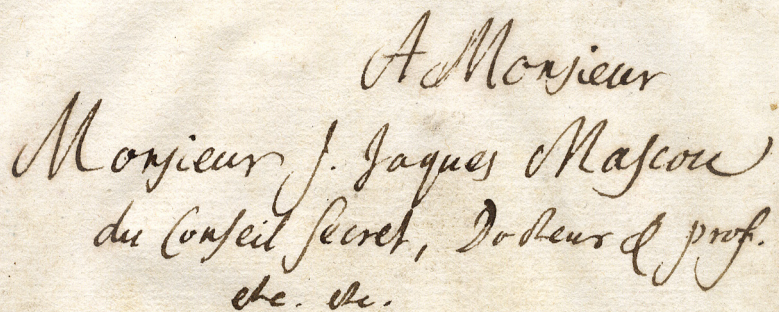 A Monsieur
Monsieur J. Jaques Mascou
du Conseil Secret, Docteur & prof.
etc. etc.